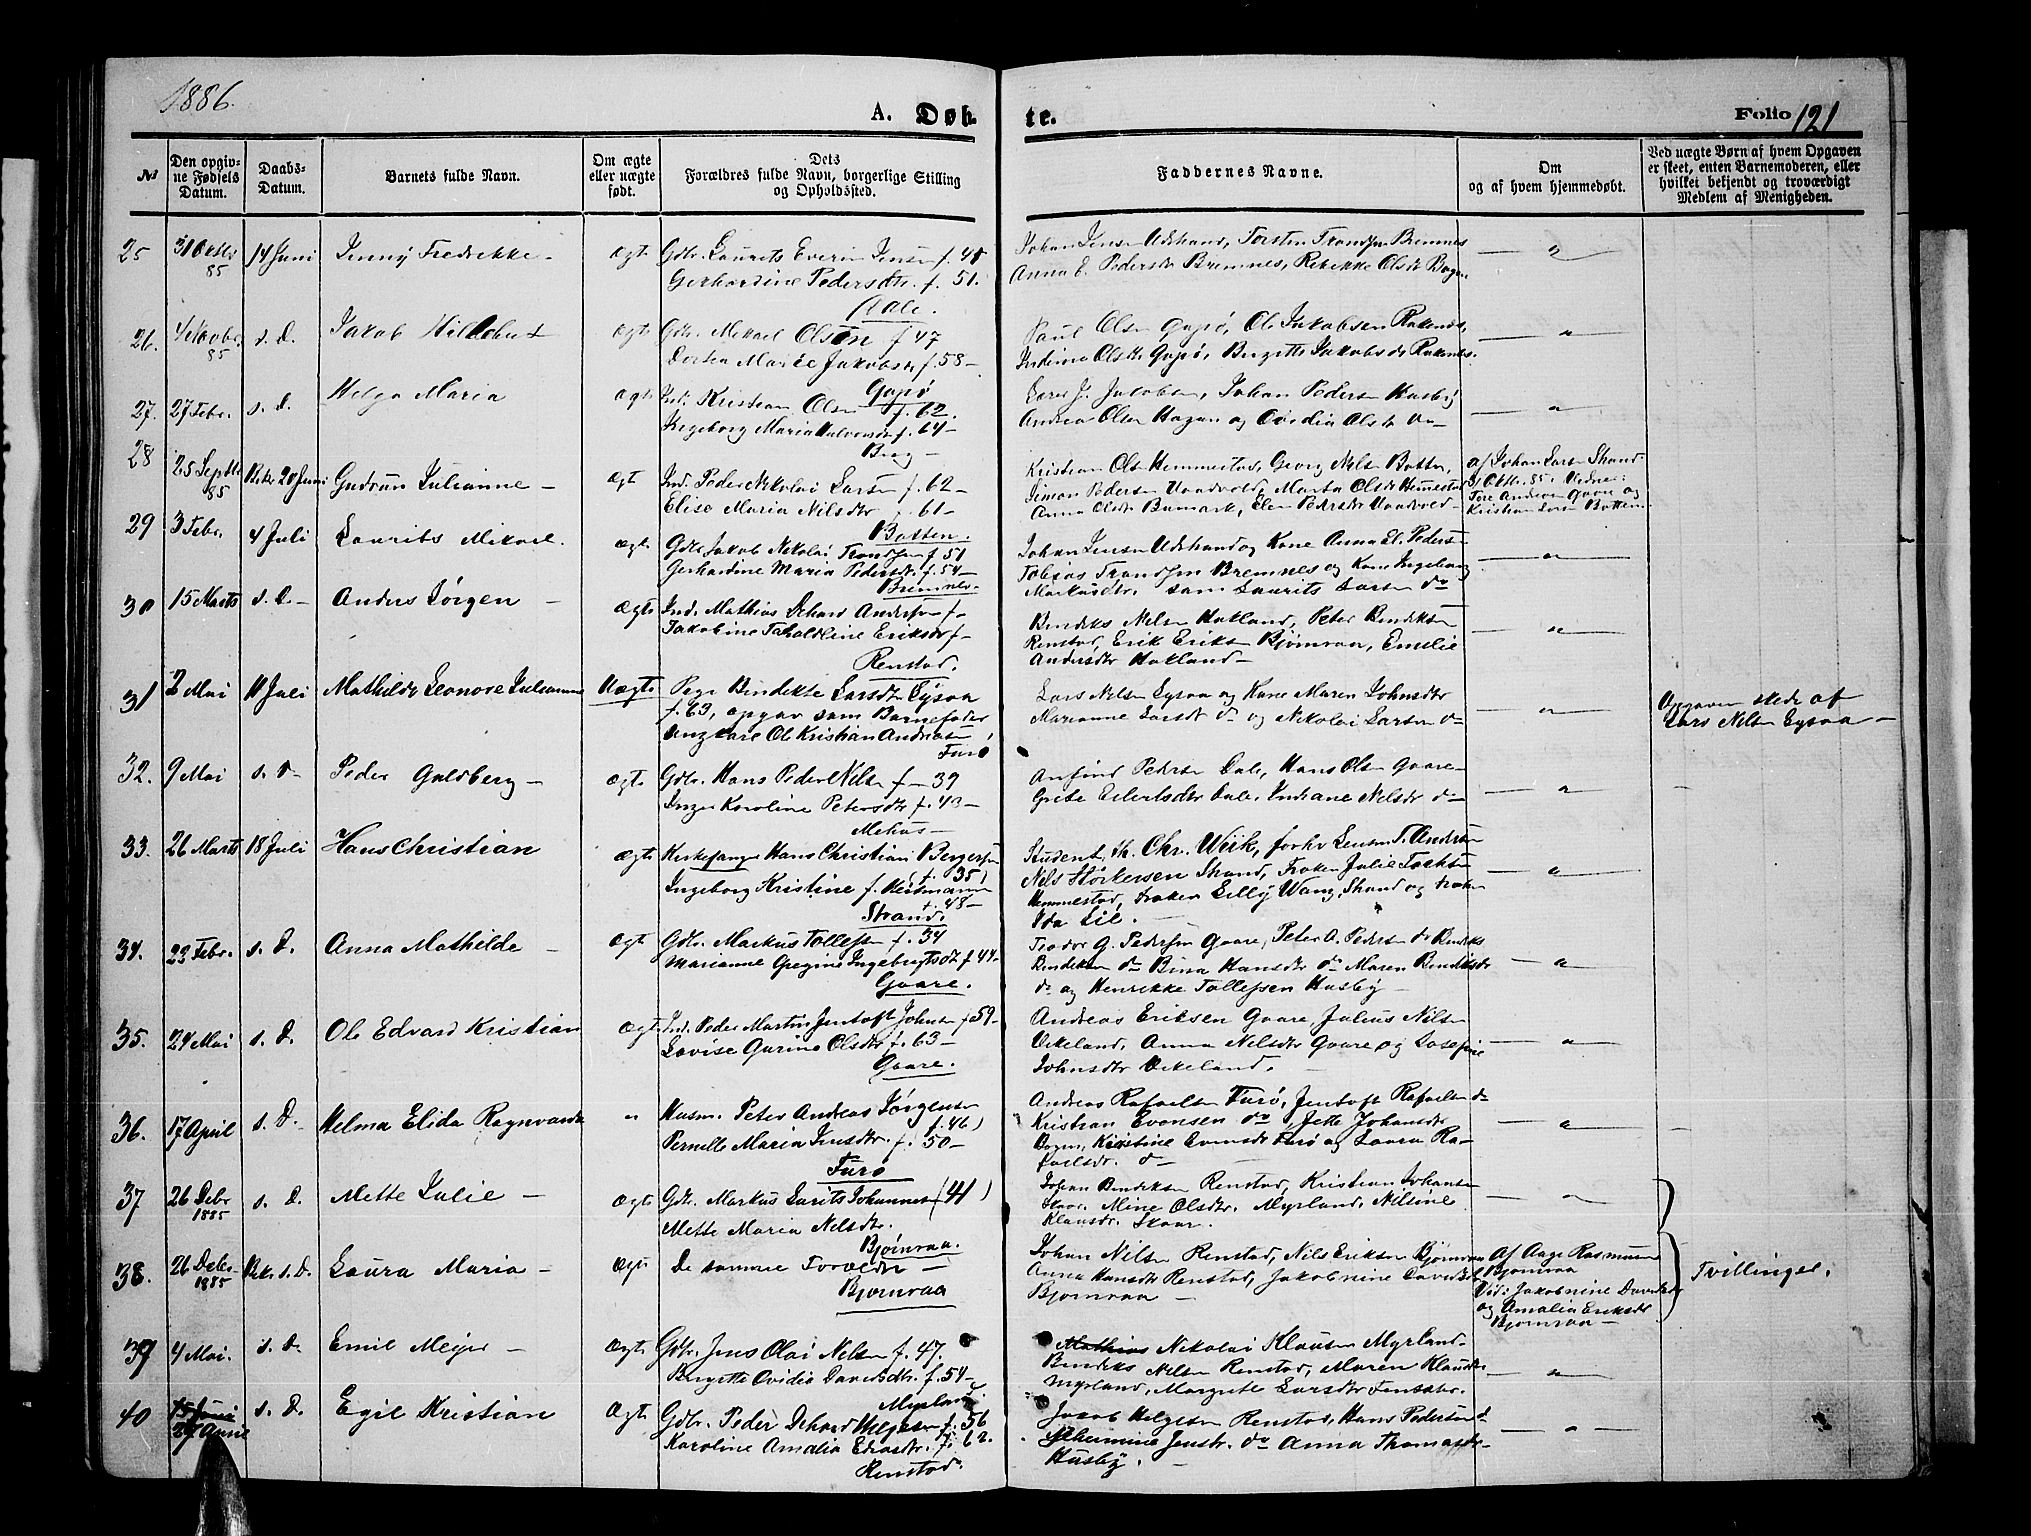 1886.
A. Døb- te. Folio 121
№
Den opgiv-
ne Fødsels
Datum.
Daabs-
Datum.
Barnets fulde Navn.
Om ægte
eller uægte
født.
Dets
Forældres fulde Navn, borgerlige Stilling
og Opholdssted.
Faddernes Navne.
Om
og af hvem hjemmedøbt.
Ved uægte Børn af hvem Opgaven
er skeet, enten Barnemoderen, eller
hvilket bekjendt og troværdigt
Medlem af Menigheden.
25 31 Octbr 85 14 Juni Jenny Fredrikke - Ægt Gdbr. Laurits Everin Jensen f. 48
Gerhardine Pedersdtr. f. 51.
Johan Jensen Udstrand, Torsten Trondsen Bremnes
Anna E. Pedersdtr Bremnes, Rebekke Olsdtr Bogen
26. 4 Novbr. 85 s. D. Jakob Hillebert Ægt Gdbr. Mikael Olsen f 47
Dortea Marie Jakobsdtr f. 58 -
Gapø
Paul Olsen Gapø, Ole Jakobsen Rokenes,
Indine Olsdtr Gapø, Birgitte Jakobsdtr Rokenes.
27. 27 Febr. s. D. Helga Maria Ægt Ind. Kristian Olsen f. 62.
Ingeborg Maria Halvorsdtr f. 64 -
Berg -
J. Jakobsen, Johan Pedersen Husby
Andrea Olsen Hagan og Ovidia Olsdtr do
28 25 Septbr 85 Bekr 20 Juni Gudrun Julianne - Ægt Ind. Peder Nikolai Larsen f. 62 -
Elise Maria Nilsdtr f. 61 -
Botten.
Kristian Olsen Hemmestad, Georg Nilsen Botten,
Simon Pedersen Vaadvold, Marta Olsdtr Hemestad
Anna Olsdtr Bumark, Elen Pedersdtr Vaadvold -
af Johan Larsen Strand
Octbr. 85. Vidner:
Tore Andersen Gaare og
Kristian Larsen Botten.
29 3 Febr. 4 Juli Laurits Mikael. Ægt Gdbr Jakob Nikolai Trondsen f. 51
Gerhardine Maria Pedersdtr. f. 54 -
Bremnes.
Johan Jensen Udstrand og Kone Anna El. Pedersdtr
Tobias Trondsen Bremnes og Kone Ingeborg
Markusdtr. sam Laurits Larsen do
30 15 Marts s. D - Anders Jørgen - Ægt Ind. Mathias Dehard Andersen f -
Jakobine Eriksdtr f -
Renstad.
Bendiks Nilsen Hokland, Peter Bendiksen
Renstad, Erik Eriksen Bjørnraa, Emelie
Andersdtr Hokland -
31 2 Mai 11 Juli Mathilde Leonore Julianne Uægte Pige Bendikte Larsdtr Eysaa
f. 63, opgav som Barnefader
Ungkare Ole Kristian Andreasen
Furø
Lars Nilsen Eysaa og Kone Maren Johnsdtr
Marianne Larsdtr do og Nikolai Larsen do
Opgaven skede af
Lars Nilsen Eysaa -
32. 9 Mai s. D Peder Guldberg - Ægt Gdbr. Hans Peder Nilsen f - 39
Inger Karoline Petersdtr f. 43 -
Mehus -
Anfind Pedersen Dale, Hans Olsen Gaare -
Grete Eilertsdtr Dale, Indiane Nilsdtr do
33. 26 Marts 18 Juli Hans Christian Ægt Kirkesanger Hans Christian Bergersen
(f. 35)
Ingeborg Kristine f. Heitmann
f. 48 -
Strand.
Student, th. Chr. Wiik, forhv Lensm. T. Andersen
Nils Størkersen Strand, Frøken Julie
Hemmestad, Frøken Lilly Wang, Strand og Frøken
Ida Lie. -
34. 23 Febr. s. D. Anna Mathilde - Ægt Gdbr. Markus Tollefsen f. 34
Marianne Gregine Ingebrigtsdtr f 44 -
Gaare.
Teodor G. Pedersen Gaare, Peter A. Pedersen do Bendiks
Bendiksen do Bina Hansdtr do Maren Bendiksdtr
do og Henrikke Tollefsen Husby -
35. 24 Mai s. D. Ole Edvard Kristian Ægt Ind. Peder Martin Jentoft Johnsen f 59 -
Lovise Gurine Olsdtr f. 63 -
Gaare.
Andreas Eriksen Gaare, Julius Nilsen
Vikeland, Anna Nilsdtr Gaare og Josefine
Johnsdtr Vikeland.
36. 17 April s. D. Helma Elida Ragnvarda " Husm. Peter Andreas Jørgensen
f. 46)
Pernille Maria Jensdtr. f. 50 -
Furø
Andreas Rafaelsen Furø, Jentoft Rafaelsen do
Kristian Evensen do, Jette Johansdtr
Bogen, Kristine Evensdtr Furø og Laura Ra-
faelsdtr. do -
37 26 Debr 1885 s. D. Mette Julie - Ægt Gdbr. Markus Lorits Johannesen (41)
Mette Maria Nilsdtr.
Bjørnraa.
Johan Bendiksen Renstad, Kristian Johansen
Skaar, Mine Olsdtr. Myrland, Nilsine
Klausdtr. Skaar.
38. 26 Debr. 1885 Bekr s. D. Laura Maria - Ægt De samme Forældre -
Bjørnraa
Johan Nilsen Renstad, Nils Eriksen Bjørnraa
Anna Hansdtr Renstad, Jakobnine Davidsdtr
Bjørnraa -
Af Aage Rasmussen
Bjørnraa
Vid.: Jakobnine Davidsdtr
og Amalia Eriksdtr
Bjørnraa -
Tvillinger.
39 4 Mai. s. D. Emil Mejer - Ægt Gdbr. Jens Olai Nilsen f. 47.
Birgitte Ovidia Davidsdtr. f. 54 -
Myrland
Mathias Nikolai Klausen Myrland -
Bendiks Nilsen Renstad, Maren Klausdtr
Myrland, Margrete Larsdtr
40 15 Juni
27 April s. D. Egil Kristian Ægt Gdbr. Peder Dehard Helgesen f. 56
Karoline Amalia f. 62.
Renstad.
Jakob Helgesen Renstad, Hans Pedersen do
Jensdtr. do Anna Thomasdtr
Husby. -